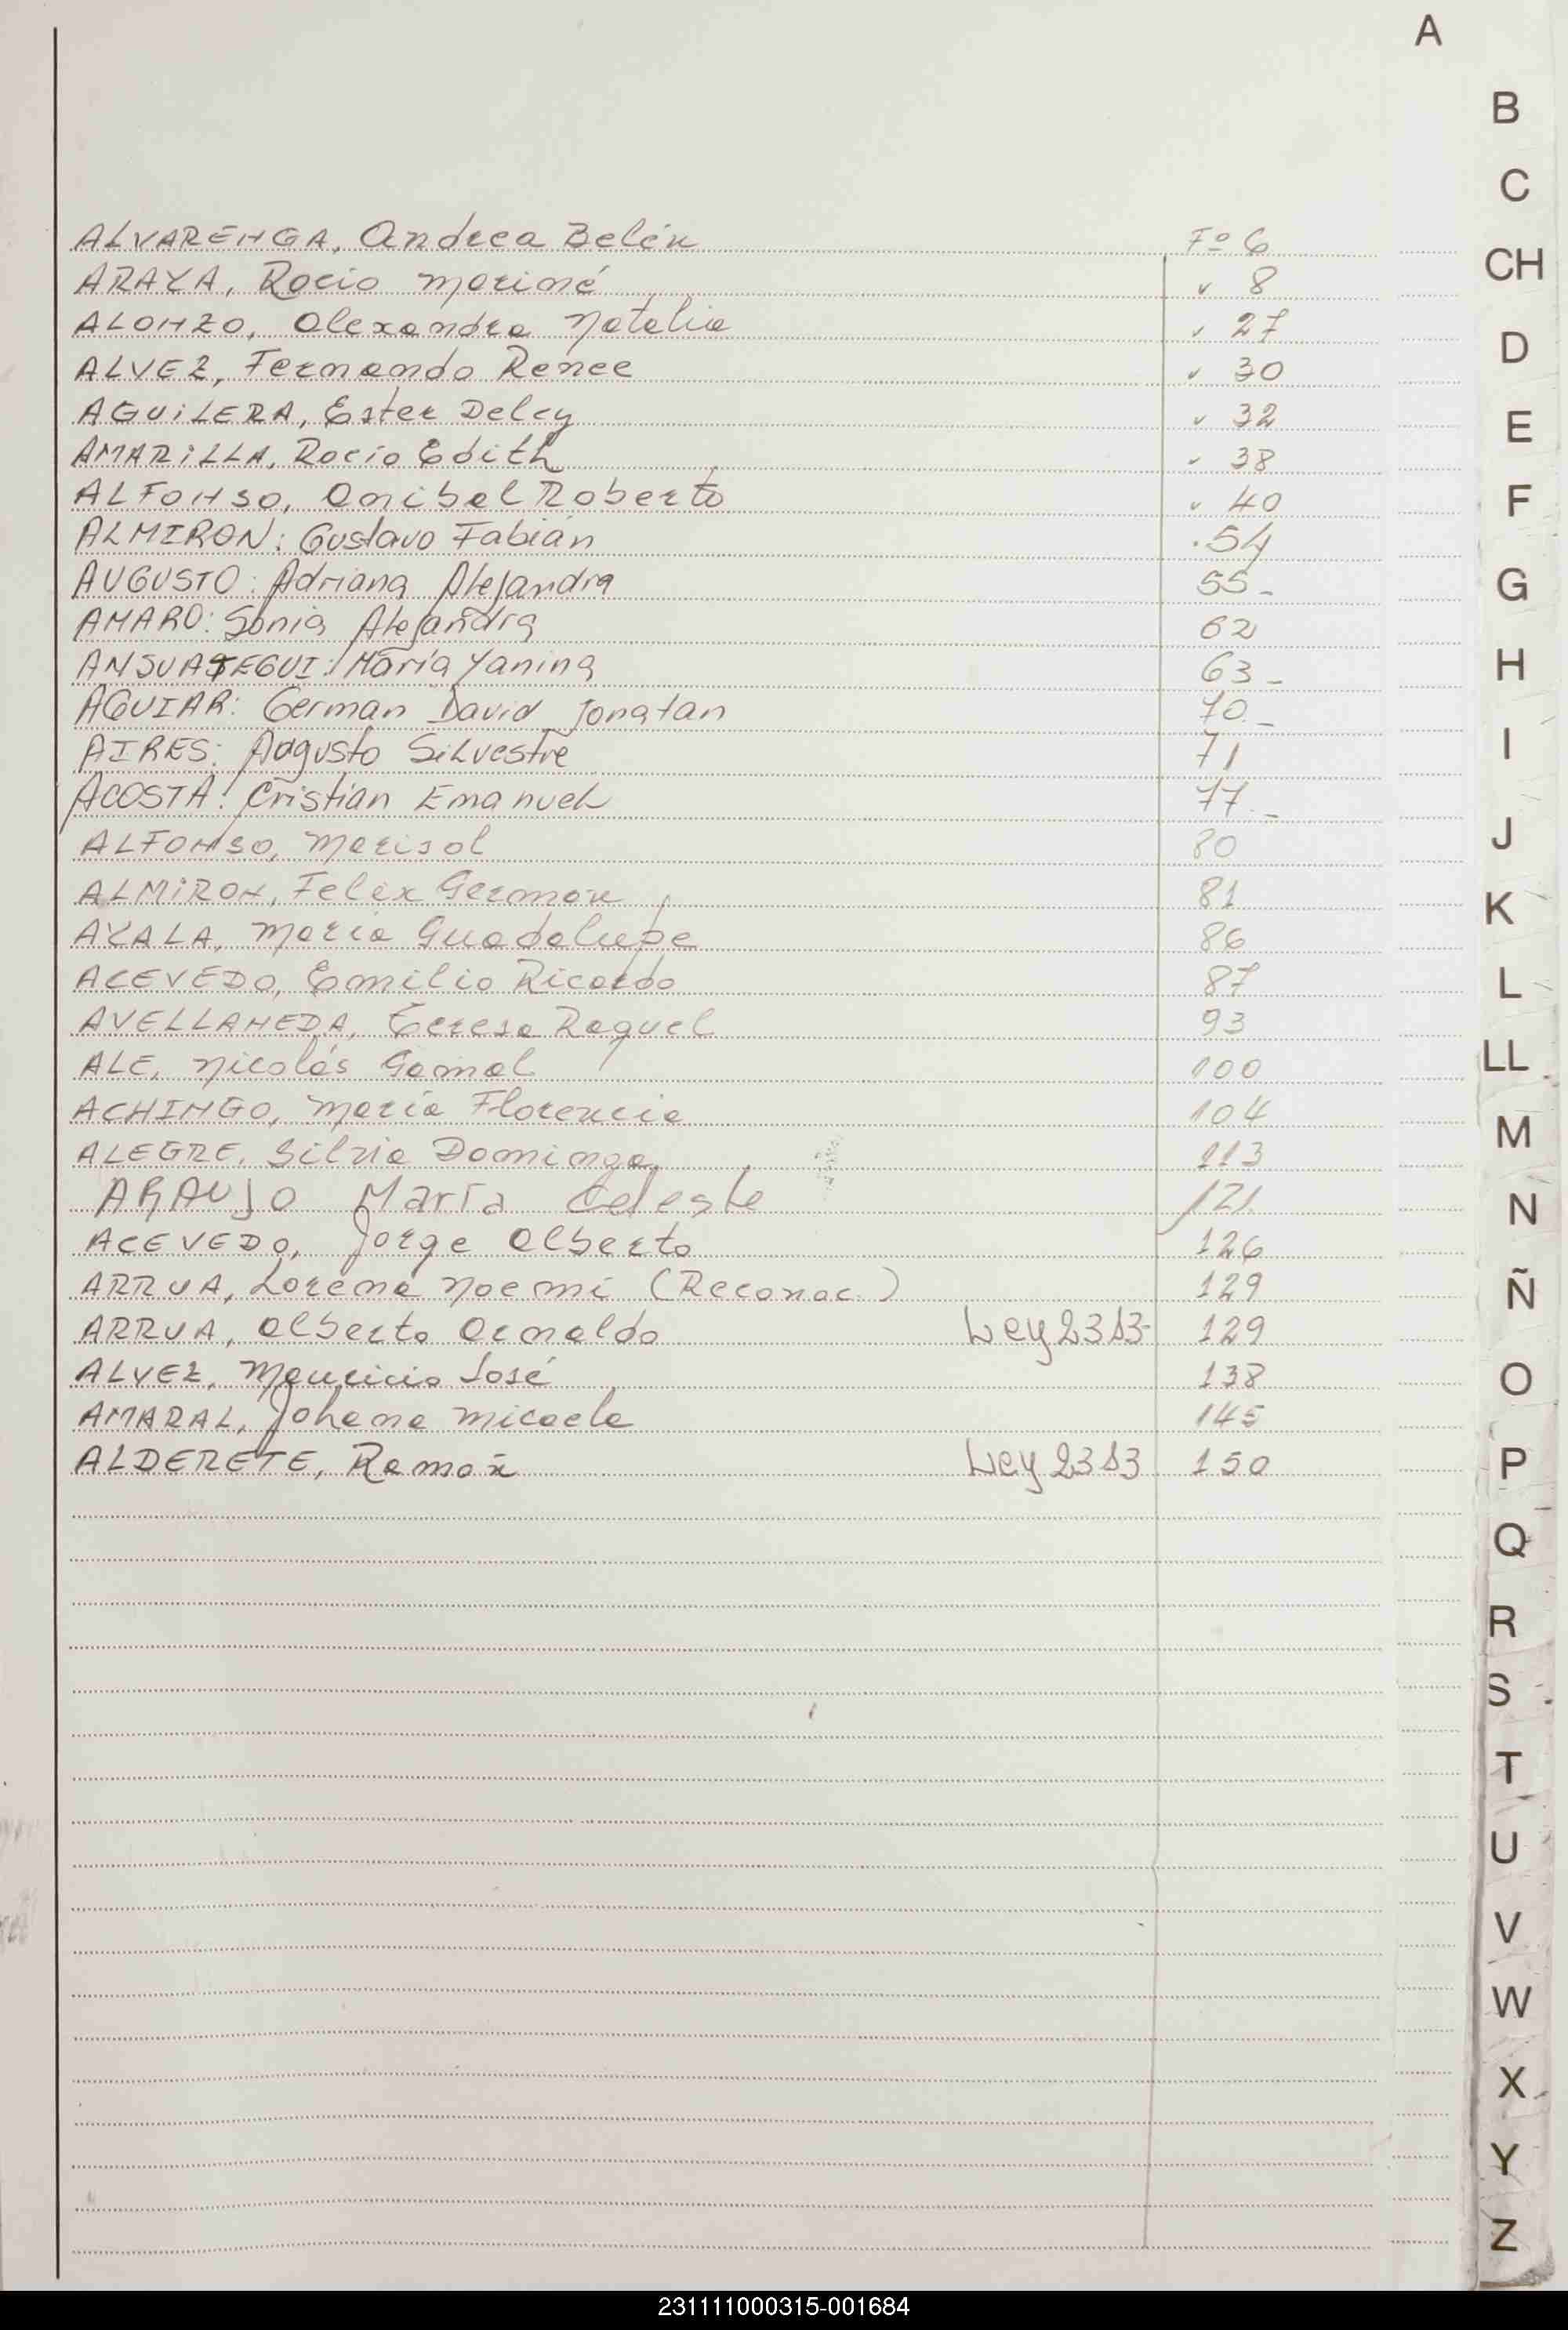 A
ALVARENGA, Andrea Belén Fº 6
ARAYA, Rocio Mariné " 8
ALONZO, Alexandra Natalia " 27
ALVEZ, Fernando Renee " 30
AGUILERA, Ester Delcy " 32
AMARILLA, Rocío Edith " 38
ALFONSO, Anibal Roberto " 40
ALMIRON: Gustavo Fabián .54
AUGUSTO: Adriana Alejandra 55-
AMARO: Sonia Alejandra 62
ANSUATEGUI: María Yanina 63-
AGUIAR: German David Jonatan 70.-
AIRES: Augusto Silvestre 71
ACOSTA: Cristian Emanuel 77.-
ALFONSO, Marisol 80
ALMIRON, Felix Germán 81
AYALA, María Guadalupe 86
ACEVEDO, Emilio Ricardo 87
AVELLANEDA, Teresa Raquel 93
ALE, Nicolás Gamal 100
ACHINGO, María Florencia 104
ALEGRE, Silvia Dominga 113
ARAUJO María Celeste 121
ACEVEDO, Jorge Alberto 126
ARRUA, Lorena Noemi (Reconoc.) 129
ARRUA, Alberto Arnaldo Ley 23S3- 129
ALVEZ, Mauricio José 138
AMARAL, Johana Micaela 145
ALDERETE, Ramón Ley 23S3 150
B
C
CH
D
E
F
G
H
I
J
K
L
LL
M
N
Ñ
O
P
Q
R
S
T
U
V
W
X
Y
Z
231111000315-001684